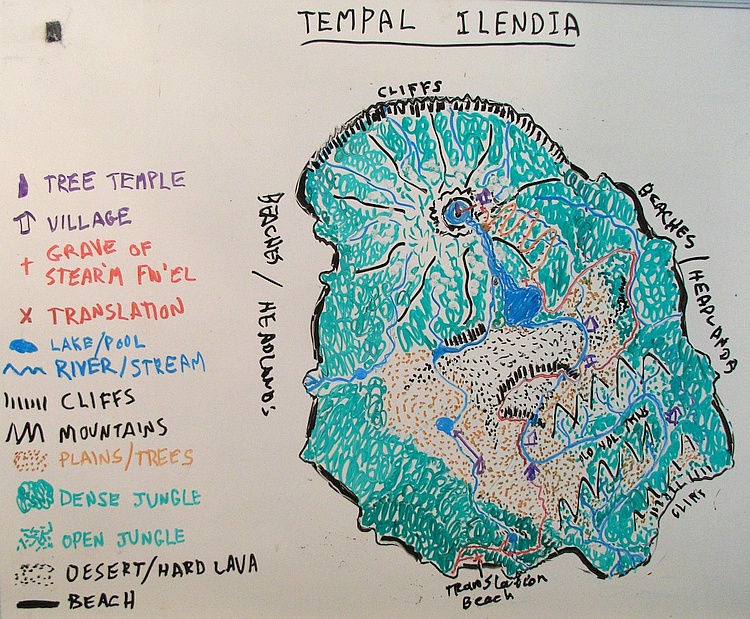 TEMPAL ILENDIA
CLIFFS
BEACHES / HEADLANDS
BEACHES / HEADLANDS
TREE TEMPLE
VILLAGE
GRAVE OF
STEAR'M FW'EL
TRANSLATION
LAKE/POOL
RIVER/STREAM
CLIFFS
MOUNTAINS
PLAINS/TREES
DENSE JUNGLE
OPEN JUNGLE
DESERT/HARD LAVA
BEACH
CLIFF
Translation
Beach